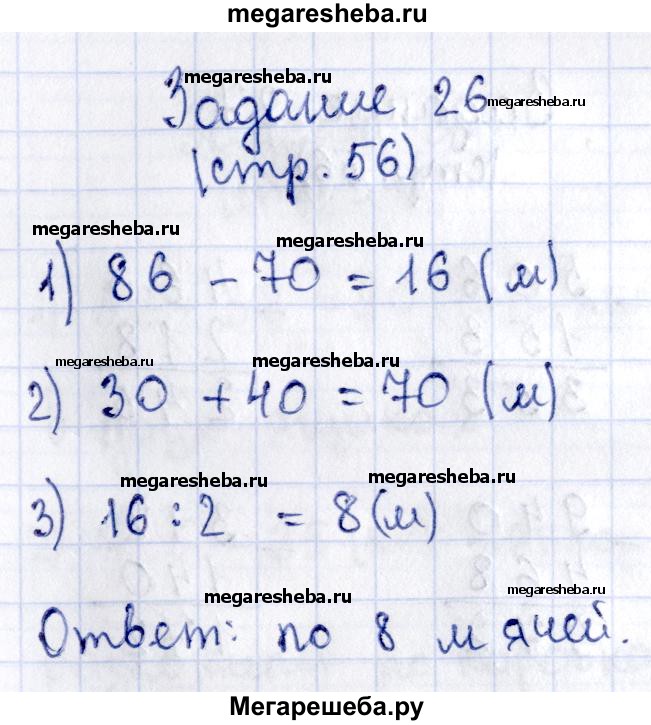 megaresheba.ru
megaresheba.ru
Задание 26
megaresheba.ru
(стр. 56)
megaresheba.ru
megaresheba.ru
1) 86 - 70 = 16 (м)
megaresheba.ru
megaresheba.ru
2) 30 + 40 = 70 (м)
megaresheba.ru
megaresheba.ru
3) 16 : 2 = 8 (м)
megaresheba.ru
megaresheba.ru
Ответ: по 8 мячей.
Мегарешеба.ру